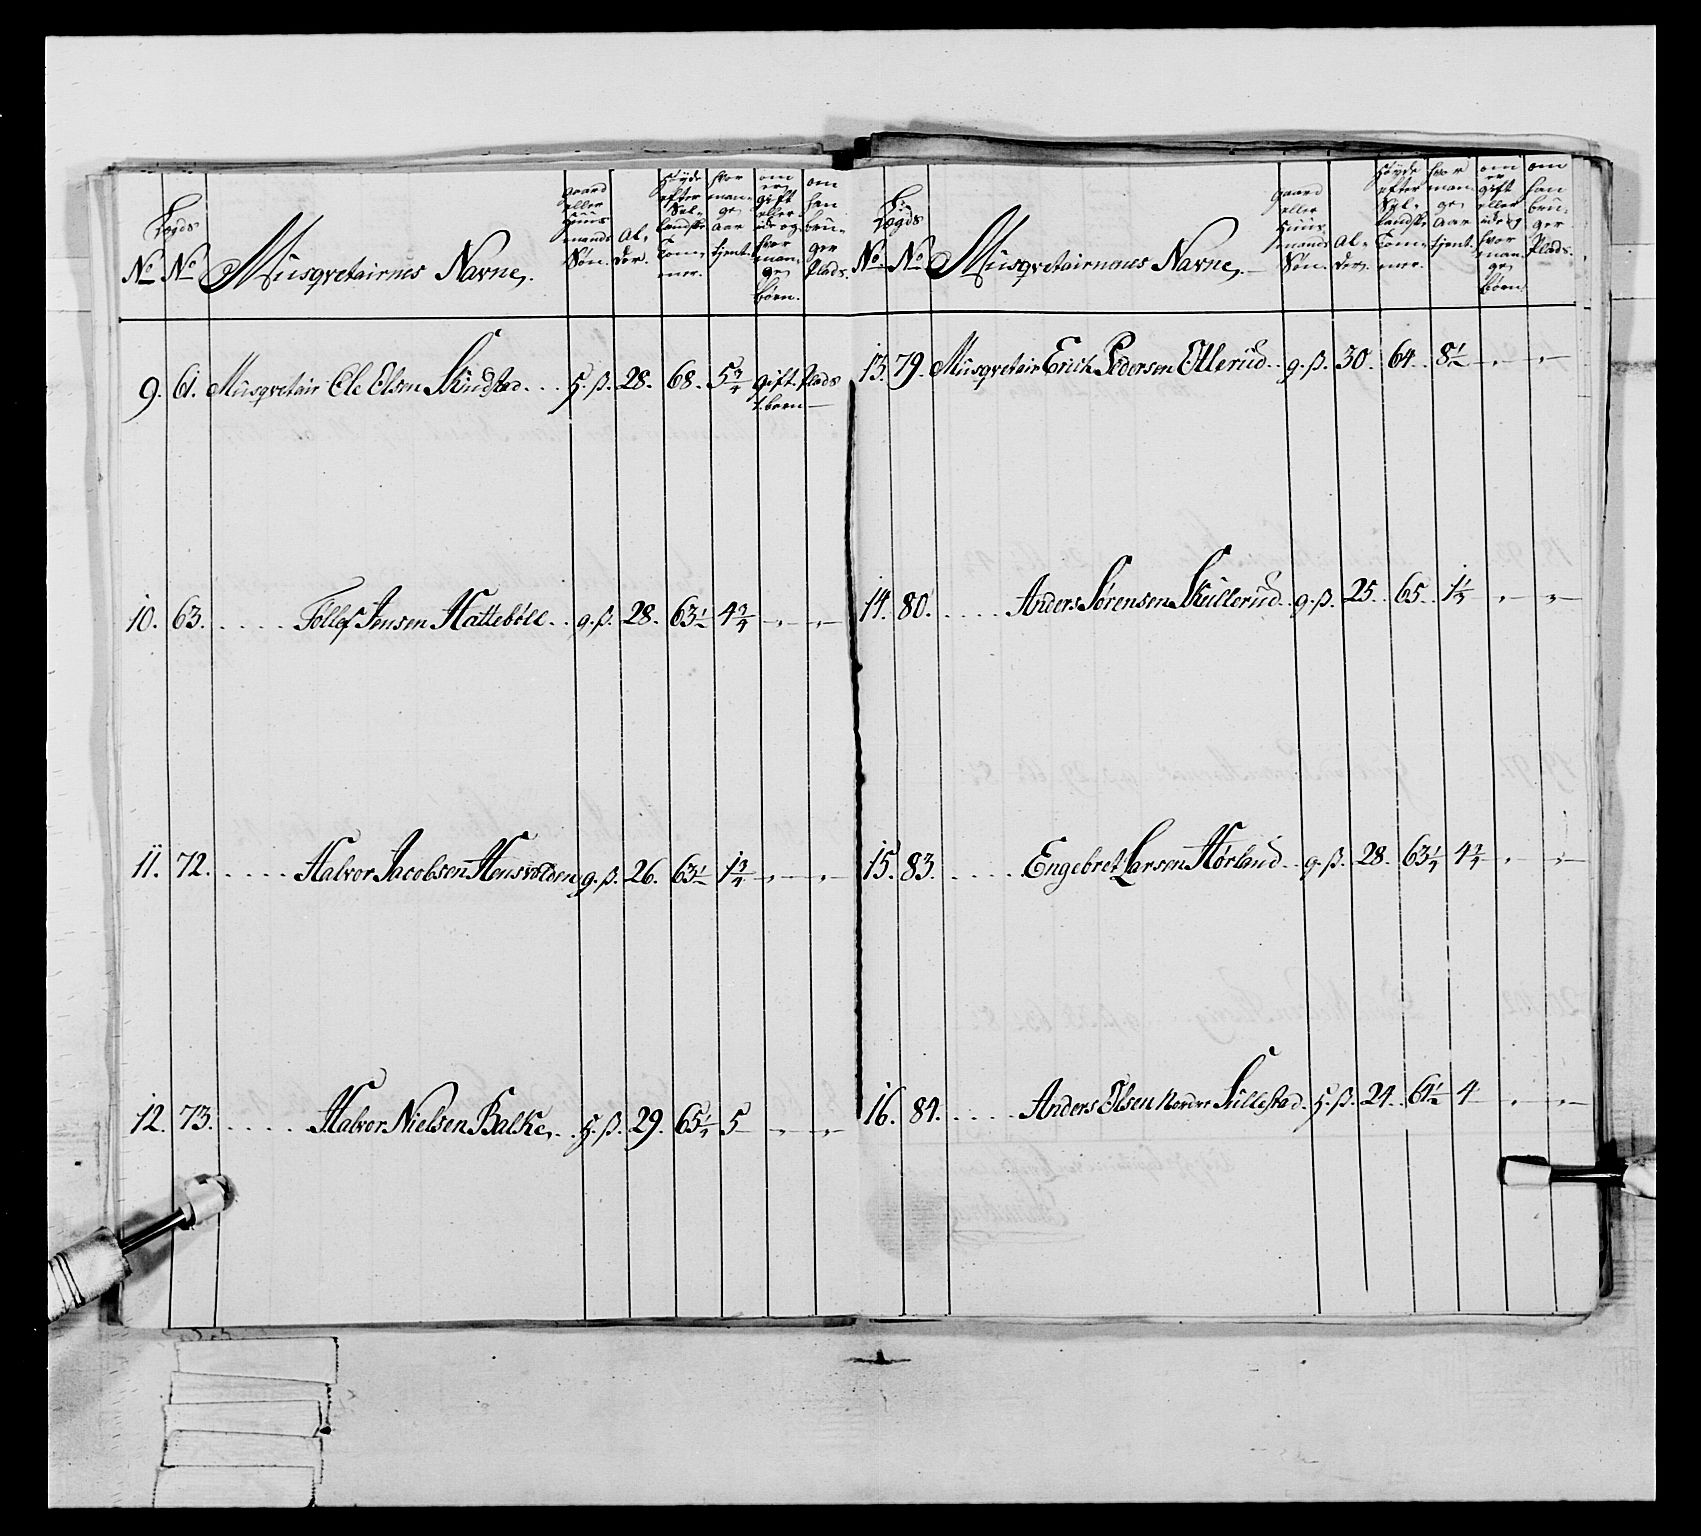 Lægds
No No Musqvetairnes Navne.
gaard eller Huusmands Søn.
Alder.
Høyde efter Sellandske Tommer.
hvor mange Aar tjent.
om er gift eller ide og hvor mange børn.
om han bruger Plads.
9. 61. Musqvetair Ole Elsen Skudstad. . . H. S. 28. 68. 5 3/4 gift 1. barn Plads —
10. 63. . . . . . Tøllef Jensen Hattebøll. . . g. S. 28. 63 1/2 4 3/4 — " — " —
11. 72. . . . . . Halvor Jacobsen Hensvolden g. S. 26. 63 1/2 1 3/4 " — " —
12. 73. . . . . . Halvor Nielsen Balke. . . H. S. 29. 65 1/4 5 — " — " —
Lægds
No No Musqvetairnaus Navne.
gaard eller Huusmands Søn.
Alder.
Høyde efter Sellandske Tommer.
hvor mange Aar tjent.
om er gift eller ide og hvor mange børn.
om han bruger Plads.
13. 79. Musqvetair Erich Pedersen Ellerud. . g. S. 30. 64. 8 1/2 — " — " —
14. 80. . . . . Anders Sørensen Skullerud. . g. S. 25. 65. 1 1/4 — " — " —
15. 83. . . . . Engebret Larsen Hørland. . g. S. 28. 63 1/4 4 3/4 — " — " —
16. 84. . . . . Anders Olsen Nordre Sillestad. H. S. 24. 64 1/2 4 — " — " —